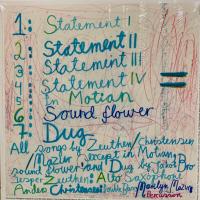 1: Statement I
2: Statement II
3: Statement III
4: Statement IV
5: In Motian
6: Sound flower
7: Dug
All songs by Zeuthen/Christensen
/Mazur except in Motian,
sound flower and Dug by Jakob Bro
Jesper Zeuthen: Alto Saxophone
Anders Christensen: Marilyn Mazur
Percussion